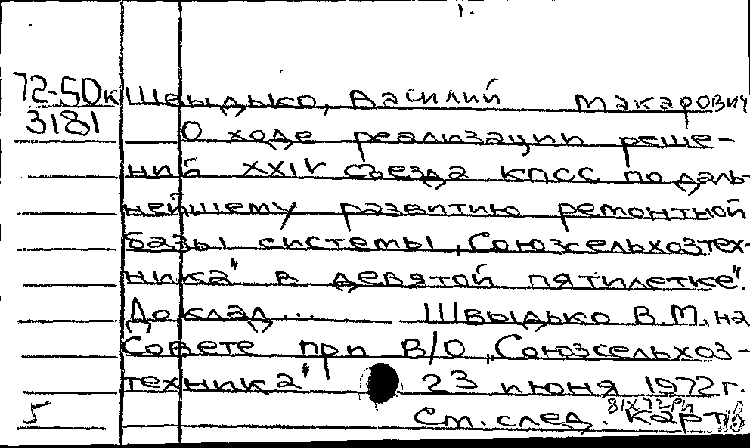 1.
72-50к Швыдько, Василий Макарович
3181 О ходе реализации реше-
ний XXIV съезда КПСС по даль-
нейшему развитию ремонтной
базы системы „Союзсельхозтех-
ника" в девятой пятилетке".
Доклад... Швыдько В.М. на
Совете при В/О „Союзсельхоз-
техника" 23 июня 1972г.
5 См. след. карт